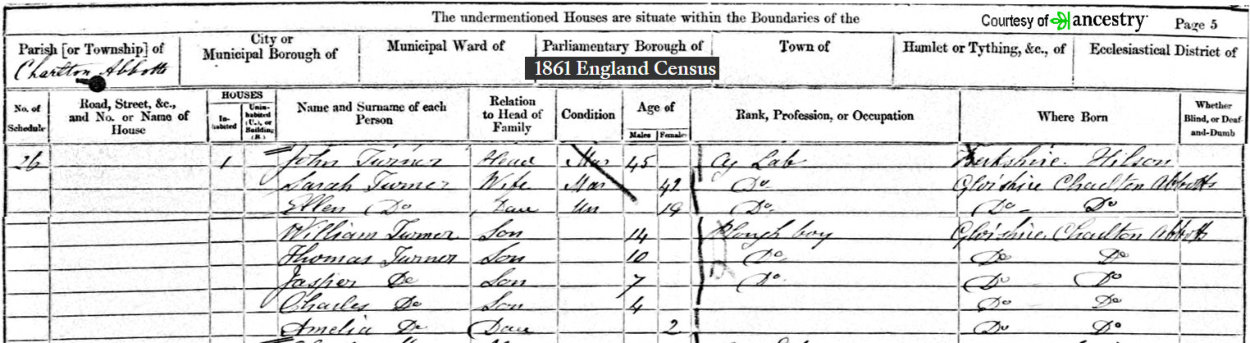 The undermentioned Houses are situate within the Boundaries of the Courtesy of ancestry Page 5
Parish [or Township] of City or Municipal Borough of Municipal Ward of Parliamentary Borough of Town of Hamlet or Tything, &c., of Ecclesiastical District of
Charlton Abbotts
1861 England Census
No. of Schedule Road, Street, &c., and No. or Name of House HOUSES Inhabited Uninhabited (U.), or Building (B.) Name and Surname of each Person Relation to Head of Family Condition Age of Males Females Rank, Profession, or Occupation Where Born Whether Blind, or Deaf-and-Dumb
26 1 John Turner Head Mar 45 Ag Lab Berkshire Hilson
Sarah Turner Wife Mar 42 Do Glo'shire Charlton Abbotts
Ellen Do Dau Un 19 Do Do Do
William Turner Son 14 Plough boy Glo'shire Charlton Abbotts
Thomas Turner Son 10 Do Do Do
Jasper Do Son 7 Do Do Do
Charles Do Son 4 Do Do
Amelia Do Dau 2 Do Do